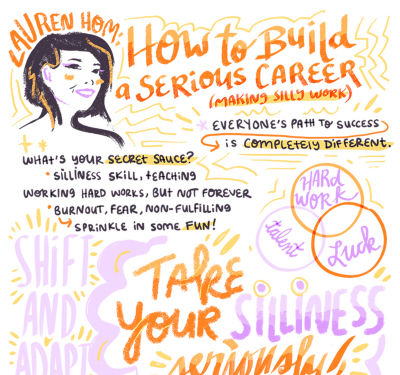 LAUREN HOM:
HOW to BUILD
a SERIOUS CAREER
(MAKING SILLY WORK)
* EVERYONE'S PATH TO SUCCESS
is COMPLETELY DIFFERENT.
WHAT'S YOUR SECRET SAUCE?
• SILLINESS SKILL, tEACHING
WORKING HARD WORKS, BUT NOT FOREVER
• BURNOUT, FEAR, NON-FULFILLING
SPRINKLE IN SOME FUN!
HARD
WORK
talent
Luck
SHIFT
AND
ADAPT
TAKE
YOUR SILLINESS
seriously!